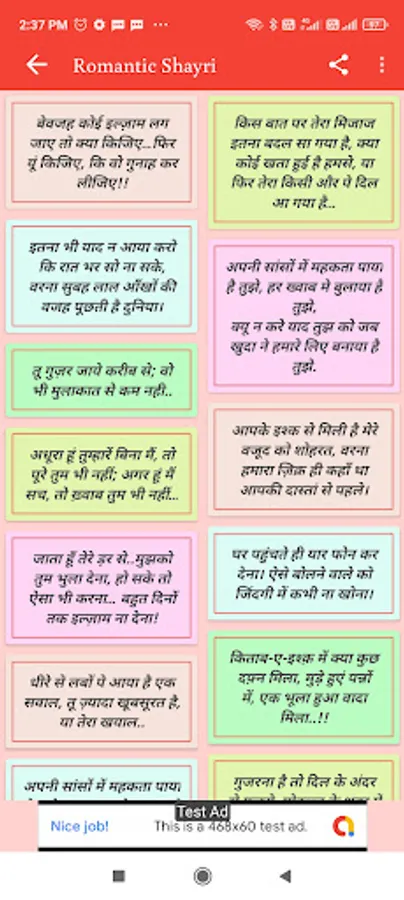 2:37 PM
97
Romantic Shayri
बेवजह कोई इल्ज़ाम लग
जाए तो क्या किजिए...फिर
यूं किजिए, कि वो गुनाह कर
लीजिए!!
इतना भी याद न आया करो
कि रात भर सो ना सके,
वरना सुबह लाल आँखों की
वजह पूछती है दुनिया।
तू गुज़र जाये करीब से; वो
भी मुलाकात से कम नही..
अधूरा हूं तुम्हारें बिना मैं, तो
पूरे तुम भी नहीं; अगर हूं मैं
सच, तो ख़्वाब तुम भी नहीं...
जाता हूँ तेरे दर से..मुझको
तुम भुला देना, हो सके तो
ऐसा भी करना... बहुत दिनों
तक इल्ज़ाम ना देना!
धीरे से लबों पे आया है एक
सवाल, तू ज़्यादा खूबसूरत है,
या तेरा खयाल..
अपनी सांसों में महकता पाया
किस बात पर तेरा मिजाज
इतना बदल सा गया है, क्या
कोई खता हुई है हमसे, या
फिर तेरा किसी और पे दिल
आ गया है...
अपनी सांसों में महकता पाया
है तुझे, हर ख्वाब मे बुलाया है
तुझे,
क्यू न करे याद तुझ को जब
खुदा ने हमारे लिए बनाया है
तुझे.
आपके इश्क से मिली है मेरे
वजूद को शोहरत, वरना
हमारा ज़िक्र ही कहाँ था
आपकी दास्तां से पहले।
घर पहुंचते ही यार फोन कर
देना। ऐसे बोलने वाले को
जिंदगी में कभी ना खोना।
किताब-ए-इश्क़ में क्या कुछ
दफ़्न मिला, मुड़े हुएं पन्नों
में, एक भूला हुआ वादा
मिला..!!
गुजरना है तो दिल के अंदर
Test Ad
Nice job!
This is a 468x60 test ad.